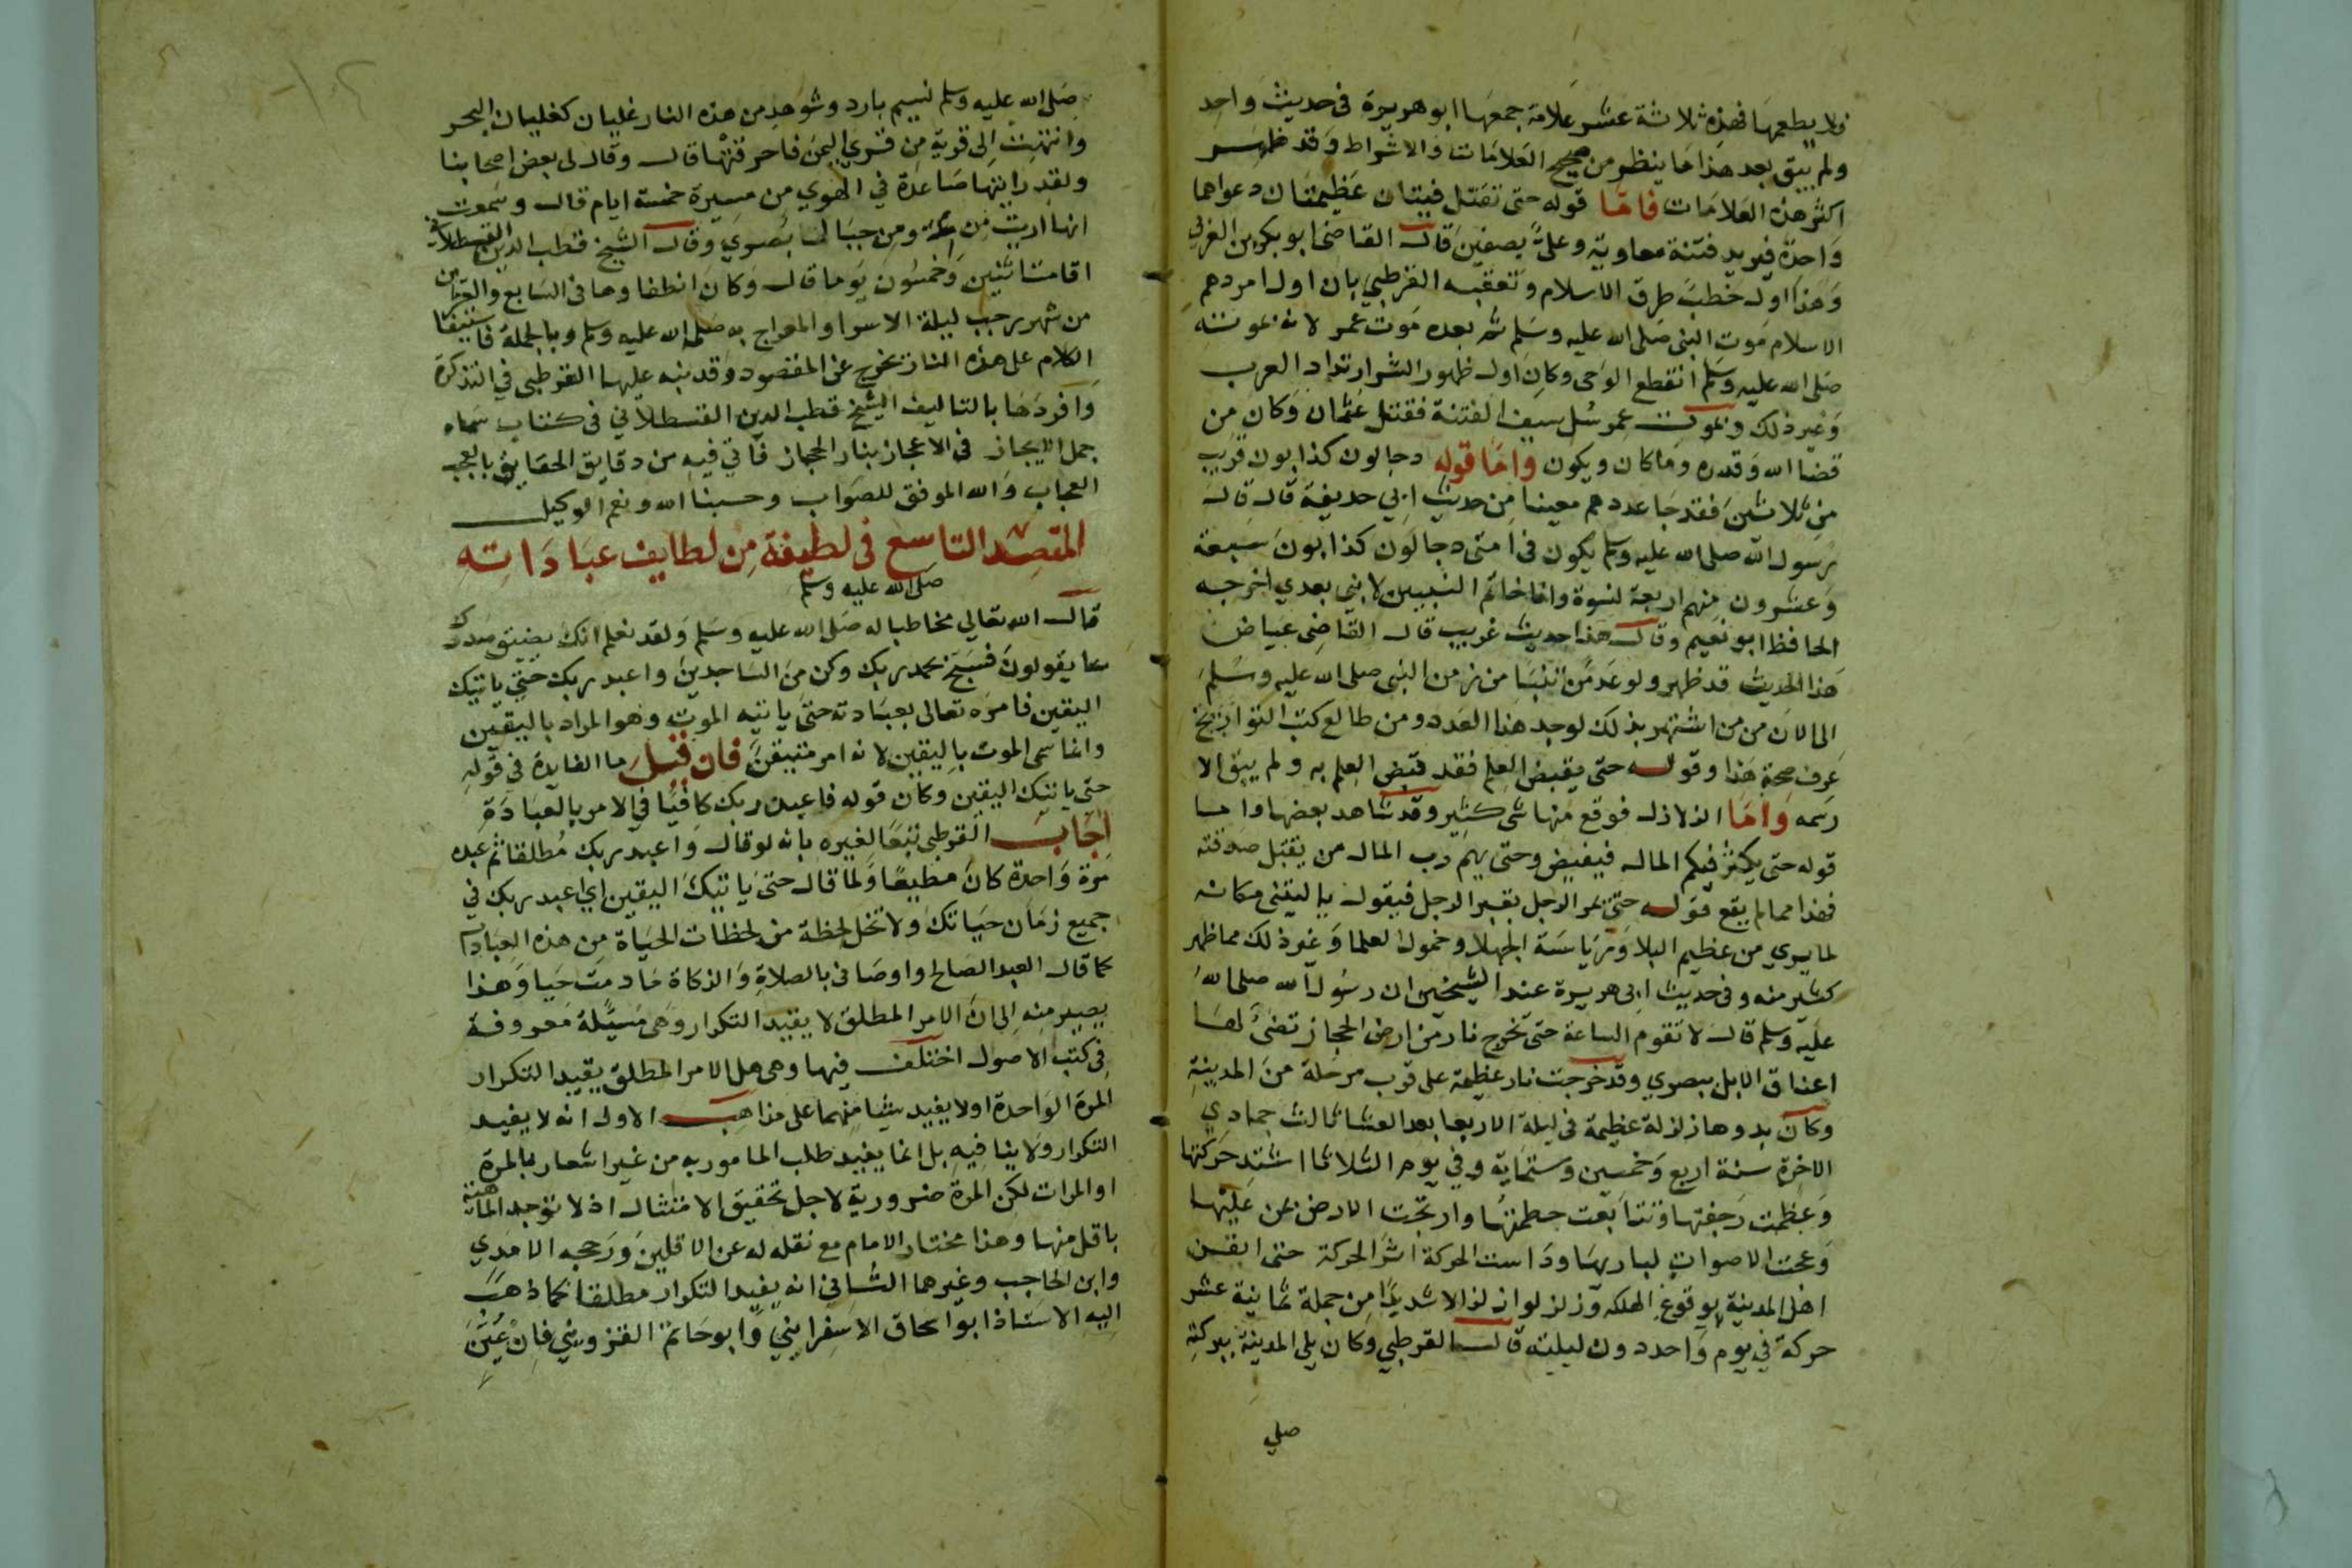 ولا يطعمها فهذه ثلاثة عشر علامة جمعها ابو هريرة فى حديث واحد
ولم يبق بعد هذا ما ينظر من صحيح العلامات والاشراط وقد ظهر
اكثر هذه العلامات فاما قوله حتى تقتتل فيتان عظيمتان دعواهما
واحدة فيريد فتنة معاوية وعلى بصفين قال القاضى ابو بكر بن العربي
وهذا اول خطب طرق الاسلام وتعقبه القرطبي بان اول امر دهم
الاسلام موت النبى صلى الله عليه وسلم ثم بعده موت عمر لانه بموته
صلى الله عليه وسلم انقطع الوحى وكان اول ظهور الشر ارتداد العرب
وغير ذلك وبموت عمر سُل سيف الفتنة فقتل عثمان وكان من
قضا الله وقدره وما كان ويكون واما قوله دجالون كذابون قريب
من ثلاثين فقد جا عددهم معينا من حديث ابي حذيفة قال قال
رسول الله صلى الله عليه وسلم يكون فى امتى دجالون كذابون سبعة
وعشرون منهم اربعة نسوة وانا خاتم النبيين لا نبي بعدي اخرجه
الحافظ ابو نعيم وقال هذا حديث غريب قال القاضى عياض
هذا الحديث قد ظهر ولو عد من تنبا من زمن النبى صلى الله عليه وسلم
الى الان من من اشتهر بذلك لوجد هذا العدد ومن طالع كتب التواريخ
عرف صحة هذا وقوله حتى يقبض العلم فقد قبض العلم به ولم يبق الا
رسمه واما الزلازل فوقع منها شى كثير وقد شاهد بعضها واما
قوله حتى يكثر فيكم المال فيفيض وحتى يهم رب المال من يقبل صدقته
فهذا مما لم يقع قوله حتى يمر الرجل بقبر الرجل فيقول يا ليتنى مكانه
لما يري من عظيم البلا ورياسة الجهلا وخمول العلما وغير ذلك مما ظهر
كثير منه وفى حديث ابى هريرة عند الشيخين ان رسول الله صلى الله
عليه وسلم قال لا تقوم الساعة حتى تخرج نار من ارض الحجاز تضئ لها
اعناق الابل ببصري وقد خرجت نار عظيمة على قرب مرحلة من المدينة
وكان بدوها زلزلة عظيمة فى ليلة الاربعا بعد العشا ثالث جمادي
الاخرة سنة اربع وخمسين وستماية وفي يوم الثلاثا اشتد حركتها
وعظمت رجفتها وتتابعت حطمتها وارتجت الارض بمن عليها
وعجت الاصوات لباريها ودامت الحركة اثر الحركة حتى ايقن
اهل المدينة بوقوع الهلكه وزلزلوا زلزالا شديدا من جملة ثمانية عشر
حركة في يوم واحد دون ليلته قال القرطبي وكان يلى المدينة ببركة
صلي
صلى الله عليه وسلم نسيم بارد وشوهد من هذه النار غليان كغليان البحر
وانتهت الى قرية من قري اليمن فاحرقتها قال وقال لى بعض اصحابنا
ولقد رايتها صاعدة في الهوي من مسيرة خمسة ايام قال وسمعت
انها اريت من مكة ومن جبال بصري وقال الشيخ قطب الدين القسطلانى
اقامت اثنين وخمسون يوما قال وكان انطفاوها فى السابع والعشرين
من شهر رجب ليلة الاسرا والمعراج به صلى الله عليه وسلم وبالجملة فاستيفا
الكلام على هذه النار تخرج عن المقصود وقد نبه عليها القرطبى في التذكرة
وافردها بالتاليف الشيخ قطب الدين القسطلاني فى كتاب سماه
جمل الايجاز فى الاعجاز بنار الحجاز فاتي فيه من دقايق الحقايق بالعجب
العجاب والله الموفق للصواب وحسبنا الله ونعم الوكيل
المقصد التاسع فى لطيفة من لطايف عباداته
صلى الله عليه وسلم
قال الله تعالي مخاطبا له صلى الله عليه وسلم ولقد نعلم انك يضيق صدرك
بما يقولون فسبح بحمد ربك وكن من الساجدين واعبد ربك حتي ياتيك
اليقين فامره تعالى بعبادته حتى ياتيه الموت وهو المراد باليقين
وانما سمى الموت باليقين لانه امر متيقن فان قيل ما الفايدة في قوله
حتى ياتيك اليقين وكان قوله فاعبد ربك كافيًا في الامر بالعبادة
اجاب القرطبى تبعا لغيره بانه لو قال واعبد ربك مطلقا ثم عبده
مرة واحدة كان مطيعا ولما قال حتى ياتيك اليقين اي اعبد ربك في
جميع زمان حياتك ولا تخل لحظة من لحظات الحياة من هذه العبادات
كما قال العبد الصالح واوصانى بالصلاة والزكاة ما دمت حيا وهذا
يصير منه الى ان الامر المطلق لا يفيد التكرار وهى مسئلة معروفة
فى كتب الاصول اختلف فيها وهى هل الامر المطلق يفيد التكرار
المرة الواحدة او لا يفيد شيا منهما على مذاهب الاول انه لا يفيد
التكرار ولا ينافيه بل انما يفيد طلب المامور به من غير اشعار بالمرة
او المرات لكن المرة ضرورية لاجل تحقيق الامتثال اذ لا توجد الماهية
باقل منها وهذا مختار الامام مع نقله له عن الاقلين ورجحه الامدي
وابن الحاجب وغيرهما الثانى انه يفيد التكرار مطلقا كما ذهب
اليه الاستاذ ابو اسحاق الاسفرايني وابو حاتم القزويني فان عين